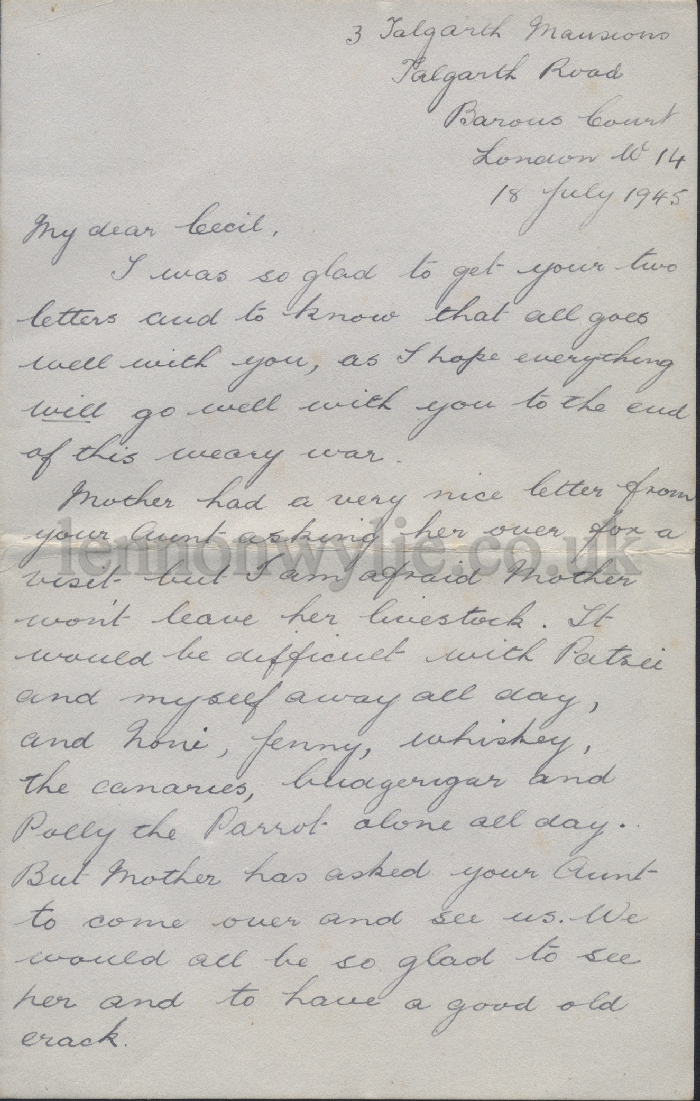 3 Talgarth Mansions
Talgarth Road
Barons Court
London W 14
18 July 1945
My dear Cecil,
I was so glad to get your two
letters and to know that all goes
well with you, as I hope everything
will go well with you to the end
of this weary war.
Mother had a very nice letter from
your Aunt asking her over for a
lennonwylie.co.uk
visit but I am afraid Mother
won't leave her livestock. It
would be difficult with Patsie
and myself away all day,
and Noni, Jenny, whiskey,
the canaries, budgerigar and
Polly the Parrot alone all day.
But Mother has asked your Aunt
to come over and see us. We
would all be so glad to see
her and to have a good old
crack.